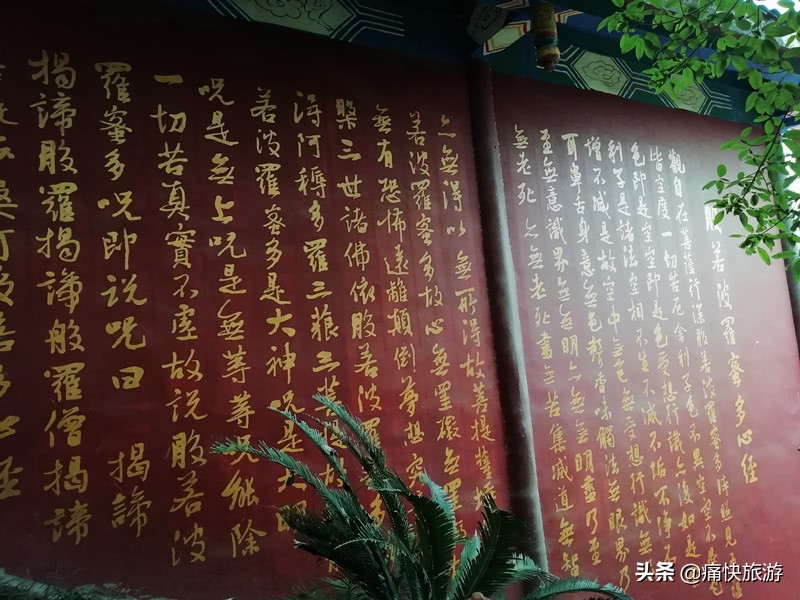 般若波羅蜜多心經
觀自在菩薩行深般若波羅蜜多時照見五
皆空度一切苦厄舍利子色不異空空不異
色即是空空即是色受想行識亦復如是
利子是諸法空相不生不滅不垢不净
增不減是故空中無色無受想行識無
耳鼻舌身意無色聲香味觸法無眼界乃
至無意識界無無明亦無無明盡乃至
無老死亦無老死盡無苦集滅道無智
亦無得以無所得故菩提薩
若波羅蜜多故心無罣礙無罣
無有恐怖遠離顛倒夢想究
槃三世諸佛依般若波羅
得阿耨多羅三藐三菩提故
若波羅蜜多是大神呪是大明
呪是無上呪是無等等呪能除
一切苦真實不虛故說般若波
羅蜜多呪即說呪曰 揭諦
揭諦般羅揭諦般羅僧揭諦
头条 @痛快旅游